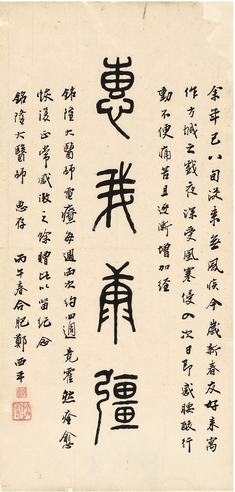 余年已八旬從來無風疾今歲新春友好來寓
作方城之戲夜深受風寒侵入次日即感腰酸行
動不便痛苦且逐漸增加經
惠我康彊
銘隆大醫師電療每週兩次約四週竟霍然痊愈
恢復正常感激之餘贈此以留紀念
銘隆大醫師 惠存 丙午春合肥鄭西平